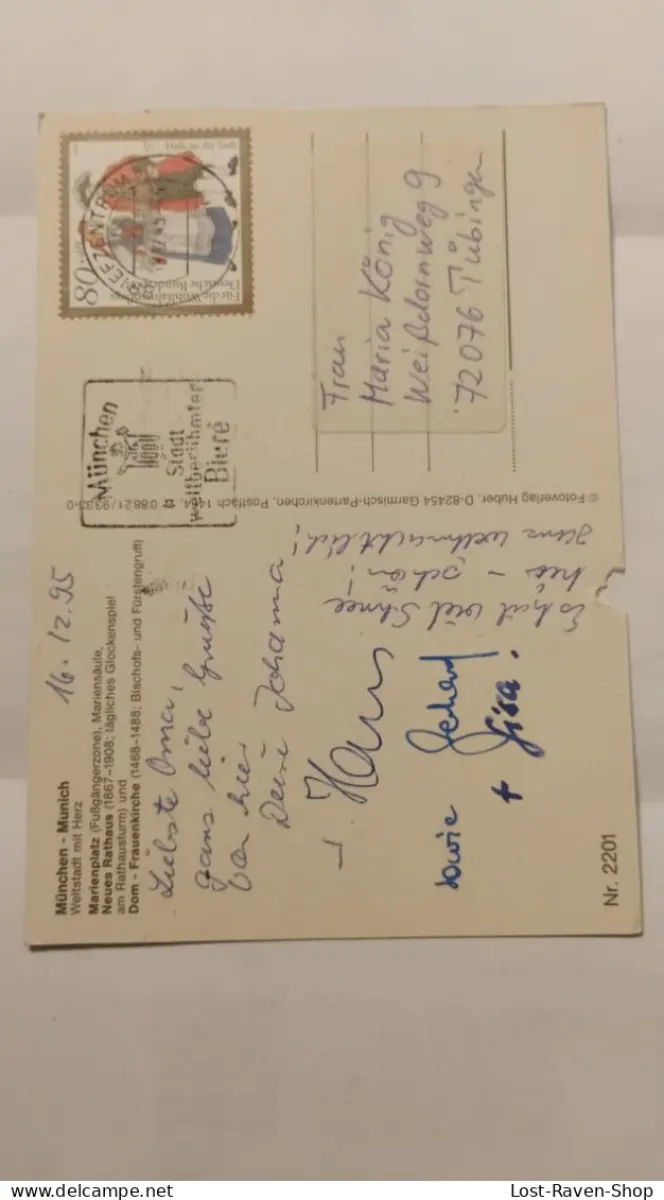 München - Munich
Weltstadt mit Herz
Marienplatz (Fußgängerzone), Mariensäule,
Neues Rathaus (1867-1908; tägliches Glockenspiel
am Rathausturm) und
Dom - Frauenkirche (1468-1488; Bischofs- und Fürstengruft)
16.12.95
Liebste Oma,
ganz liebe Grüße
von hier
Deine Johanna
+ Hans
sowie
+ Gisa.
Es hat viel Schnee
hier - schön!
ganz weihnachtlich!
Nr. 2201
© Fotoverlag Huber, D-82454 Garmisch-Partenkirchen, Postfach 1454, ☎ 08821/9333-0
München
Stadt
weltberühmter
Biere
BRIEFZENTRUM
80
Für die Wohlfahrtspflege
Deutsche Bundespost
Frau
Maria König
Weißdornweg 9
72076 Tübingen
Lost-Raven-Shop
delcampe.net